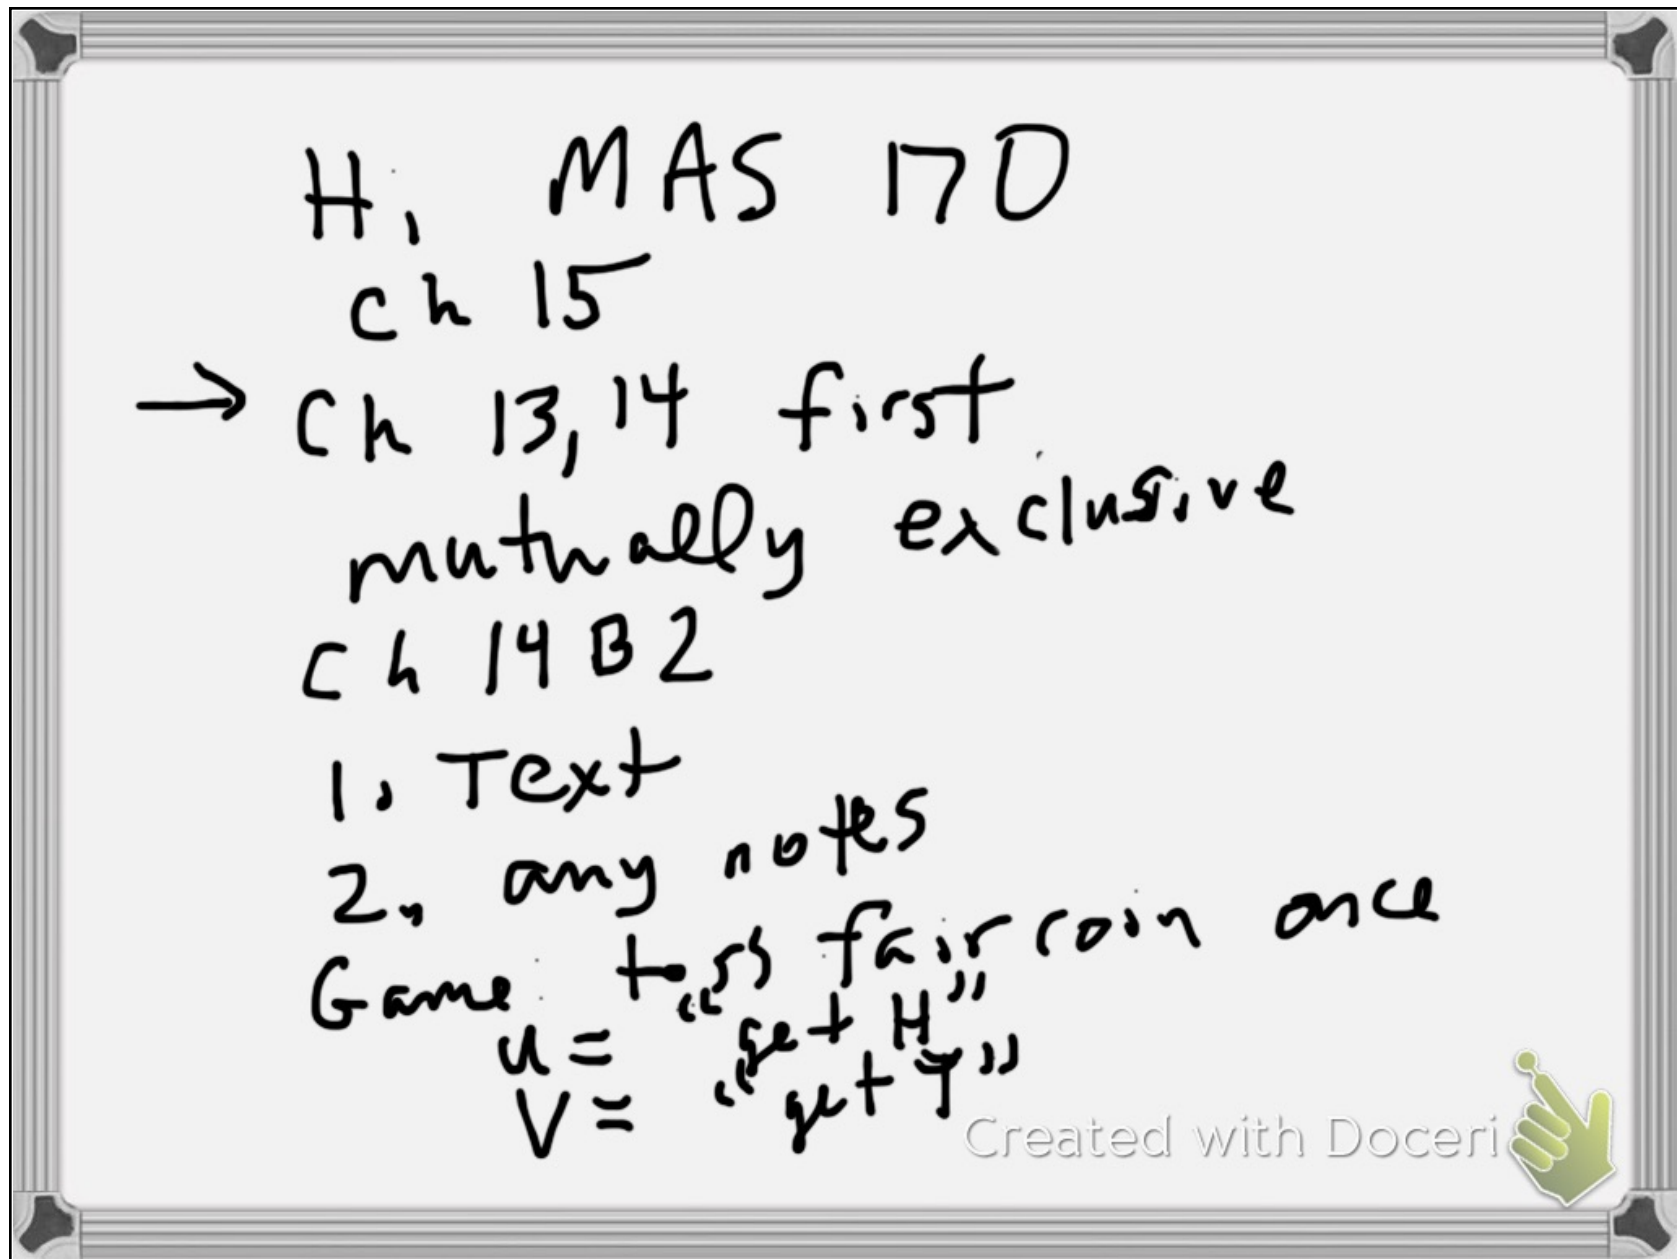 Hi, MAS 170
Ch 15
→ Ch 13, 14 first
mutually exclusive
Ch 14 B 2
1. Text
2. any notes
Game toss fair coin once
u = "get H"
V = "get T"
Created with Doceri